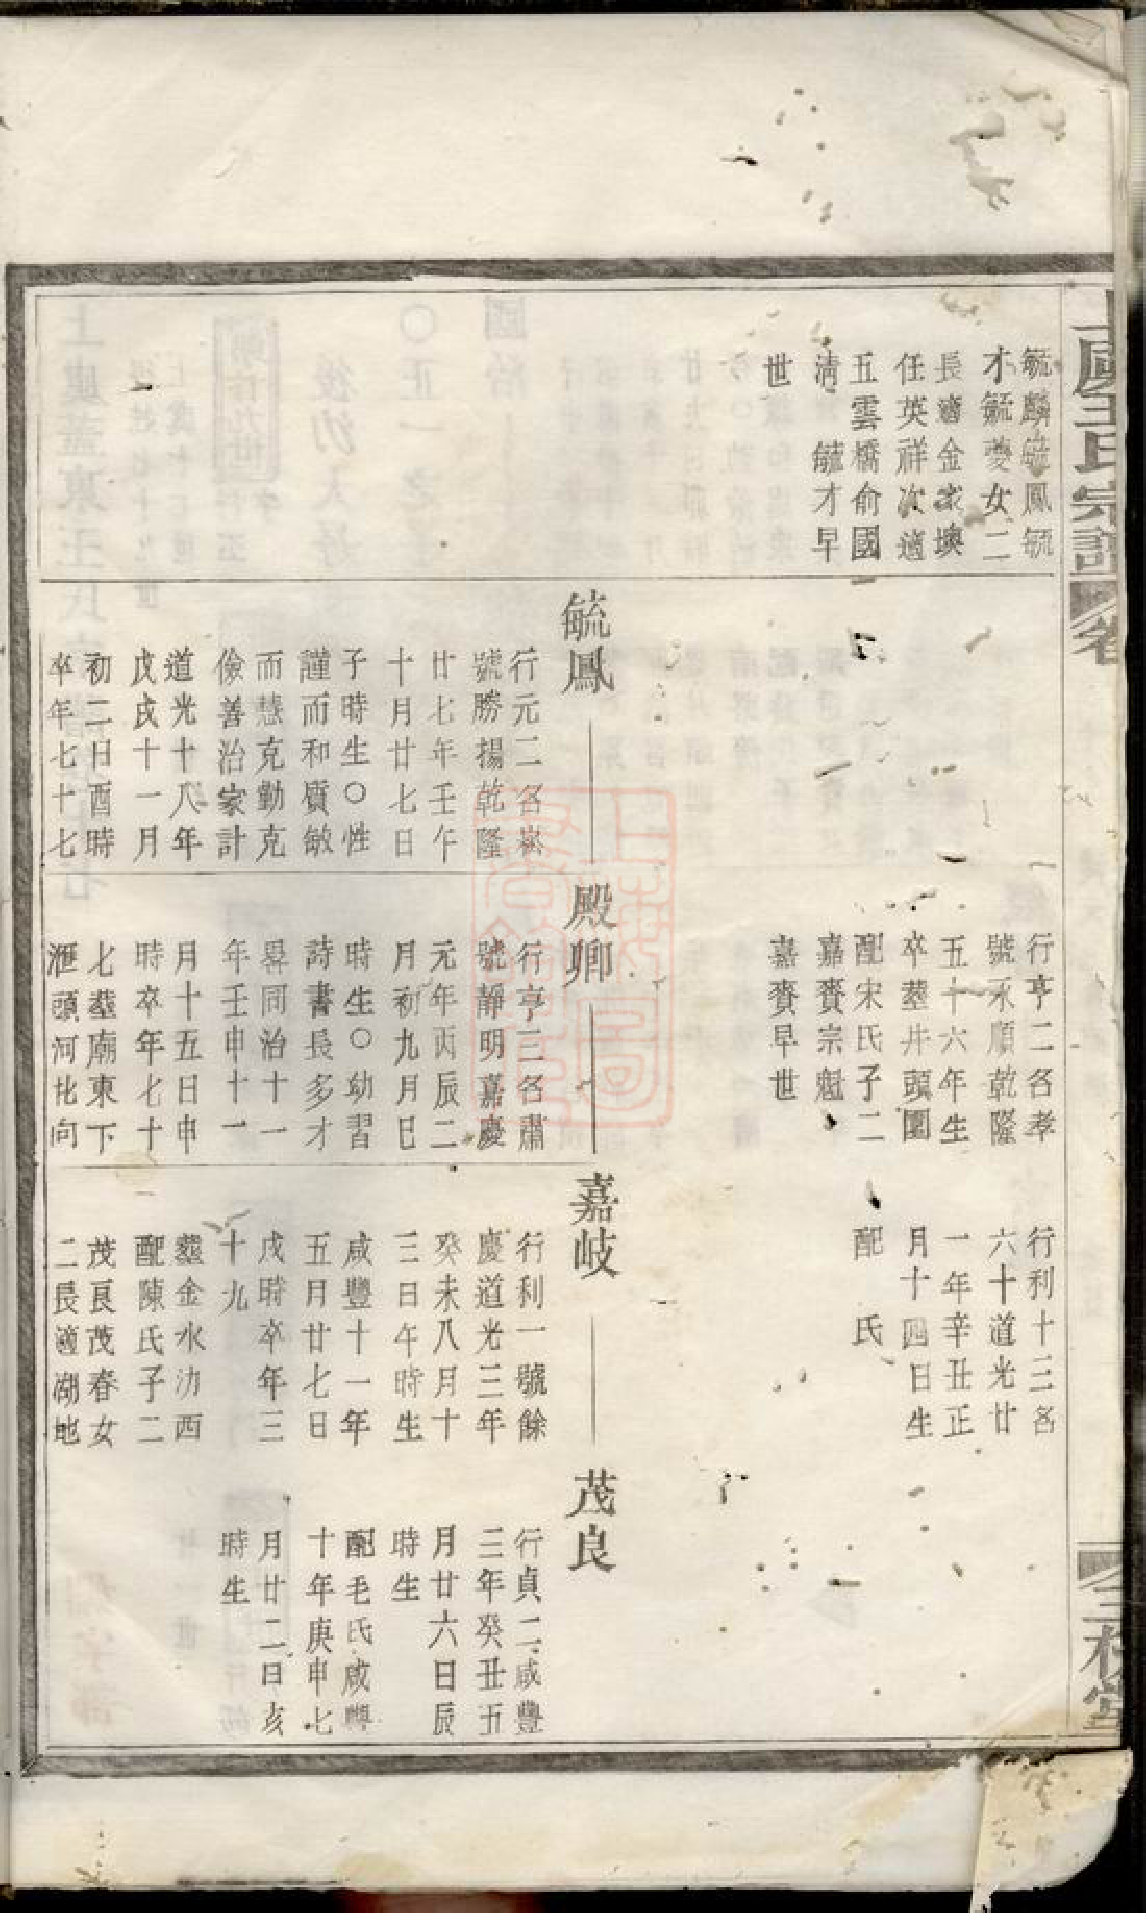 上虞王氏宗譜
卷
三槐堂
毓麟毓鳳毓
才毓夔女二
長適金家墺
任英祥次適
五雲橋俞國
清 毓才早
世
毓鳳
行元二名崧
號勝揚乾隆
廿七年壬午
十月廿七日
子時生〇性
謹而和質敏
而慧克勤克
儉善治家計
道光十八年
戊戌十一月
初二日酉時
卒年七十七
行亨二名孝
號永順乾隆
五十六年生
卒塟井頭園
配宋氏子二
嘉賚宗魁
嘉賚早世
殿卿
行亨三名肅
號靜明嘉慶
元年丙辰二
月初九月巳
時生〇幼習
詩書長多才
畧同治十一
年壬申十一
月十五日申
時卒年七十
七塟廟東下
滙頭河北向
行利十三名
六十道光廿
一年辛丑正
月十四日生
配 氏
嘉岐
行利一號餘
慶道光三年
癸未八月十
三日午時生
咸豐十一年
五月廿七日
戌時卒年三
十九
塟金水沥西
配陳氏子二
茂良茂春女
二長適湖地
茂良
行貞二咸豐
三年癸丑五
月廿六日辰
時生
配毛氏咸豐
十年庚申七
月廿二日亥
時生